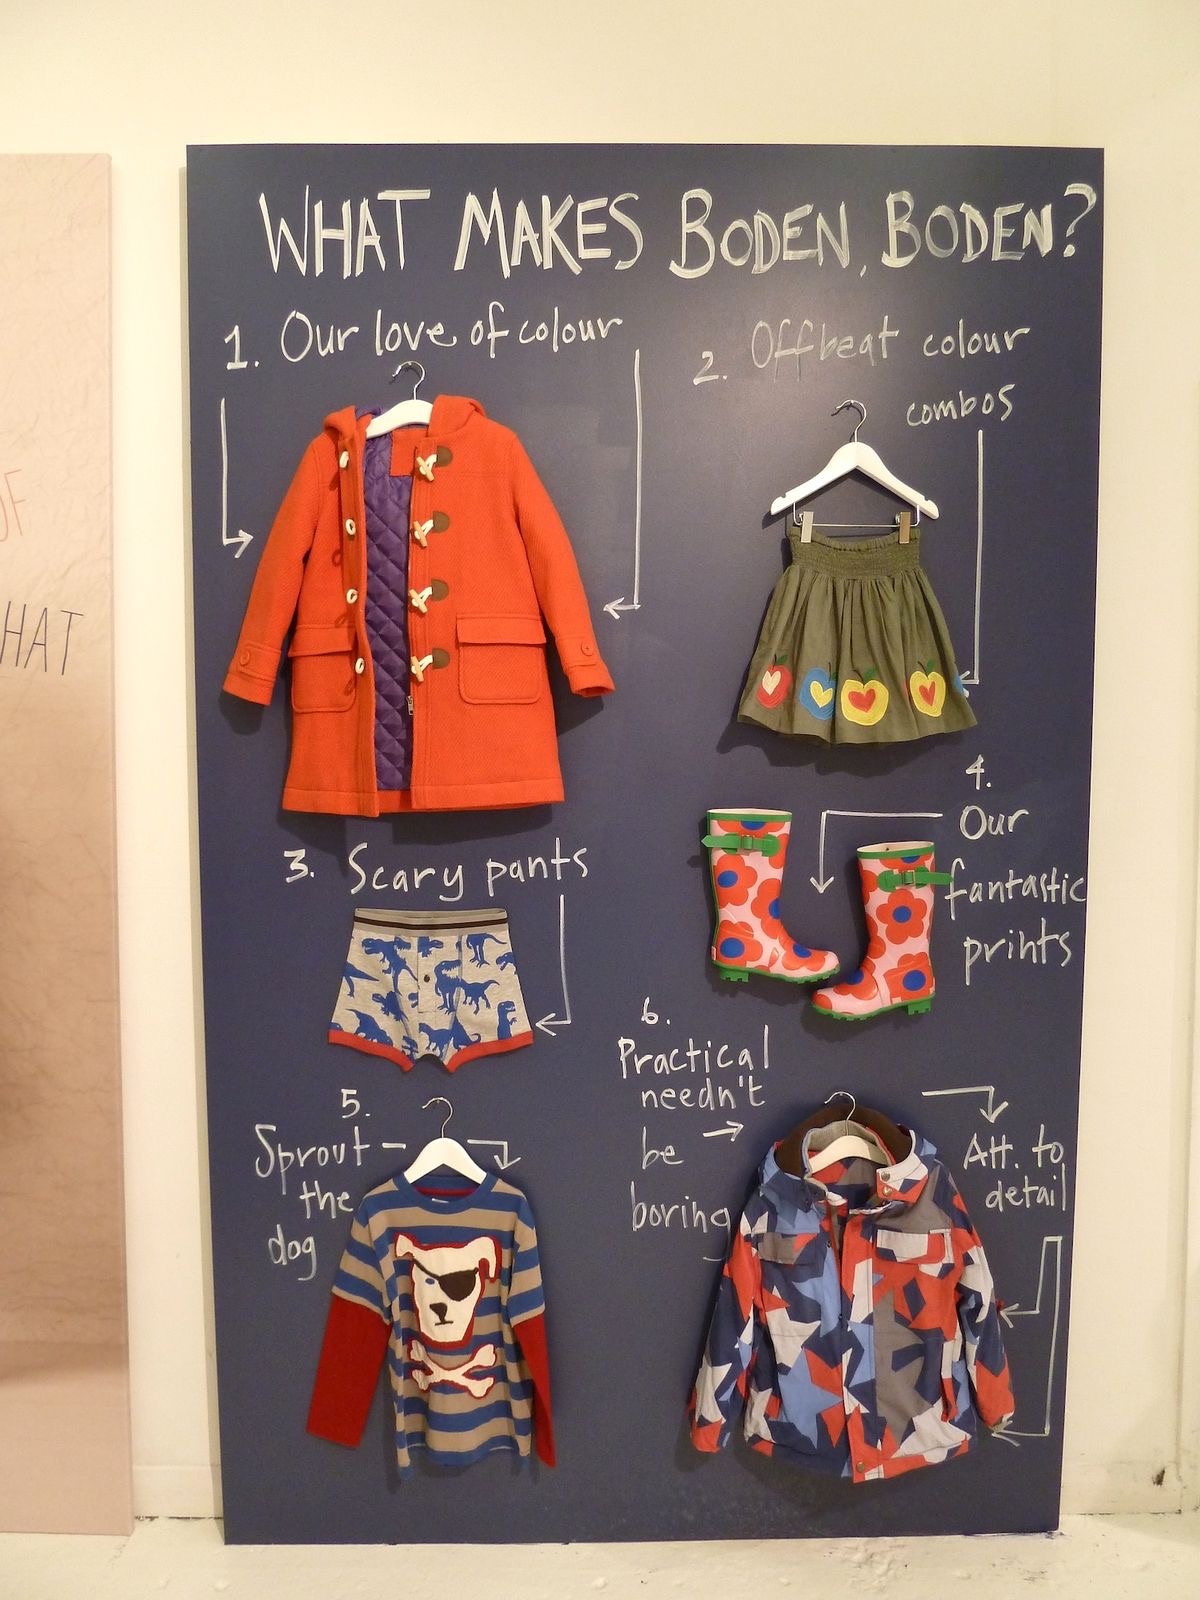 WHAT MAKES BODEN, BODEN?
1. Our love of colour
2. Offbeat colour
combos
3. Scary pants
4.
Our
fantastic
prints
5.
Sprout
the
dog
6.
Practical
needn't
be
boring
Att. to
detail
OF
HAT